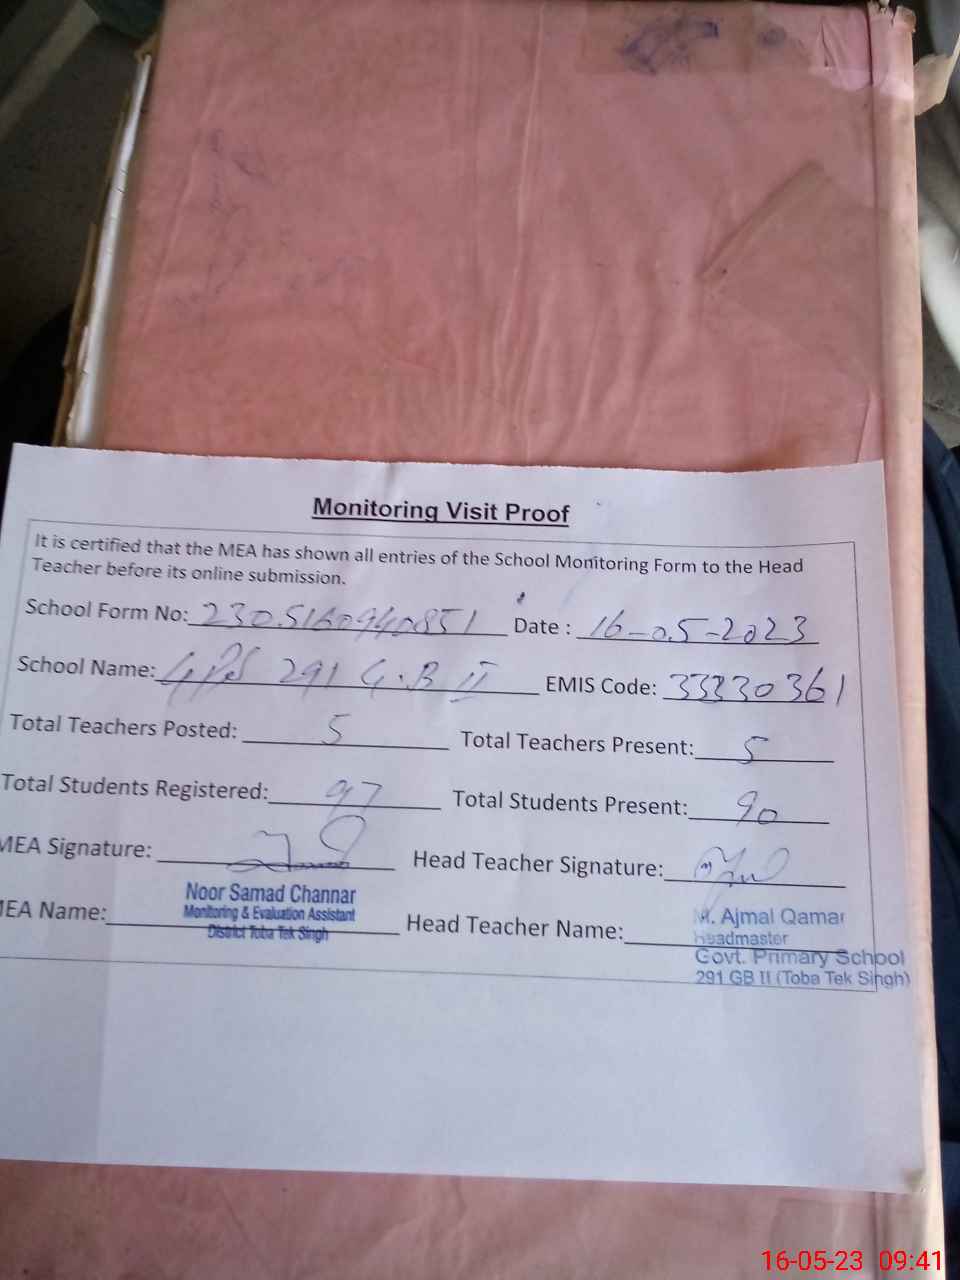 Monitoring Visit Proof
It is certified that the MEA has shown all entries of the School Monitoring Form to the Head
Teacher before its online submission.
School Form No: 2305160940851 Date : 16-05-2023
School Name: GPS 291 G.B II EMIS Code: 33230361
Total Teachers Posted: 5 Total Teachers Present: 5
Total Students Registered: 97 Total Students Present: 90
MEA Signature: Head Teacher Signature:
MEA Name: Noor Samad Channar
Monitoring & Evaluation Assistant
District Toba Tek Singh
Head Teacher Name: M. Ajmal Qamar
Headmaster
Govt. Primary School
291 GB II (Toba Tek Singh)
16-05-23 09:41